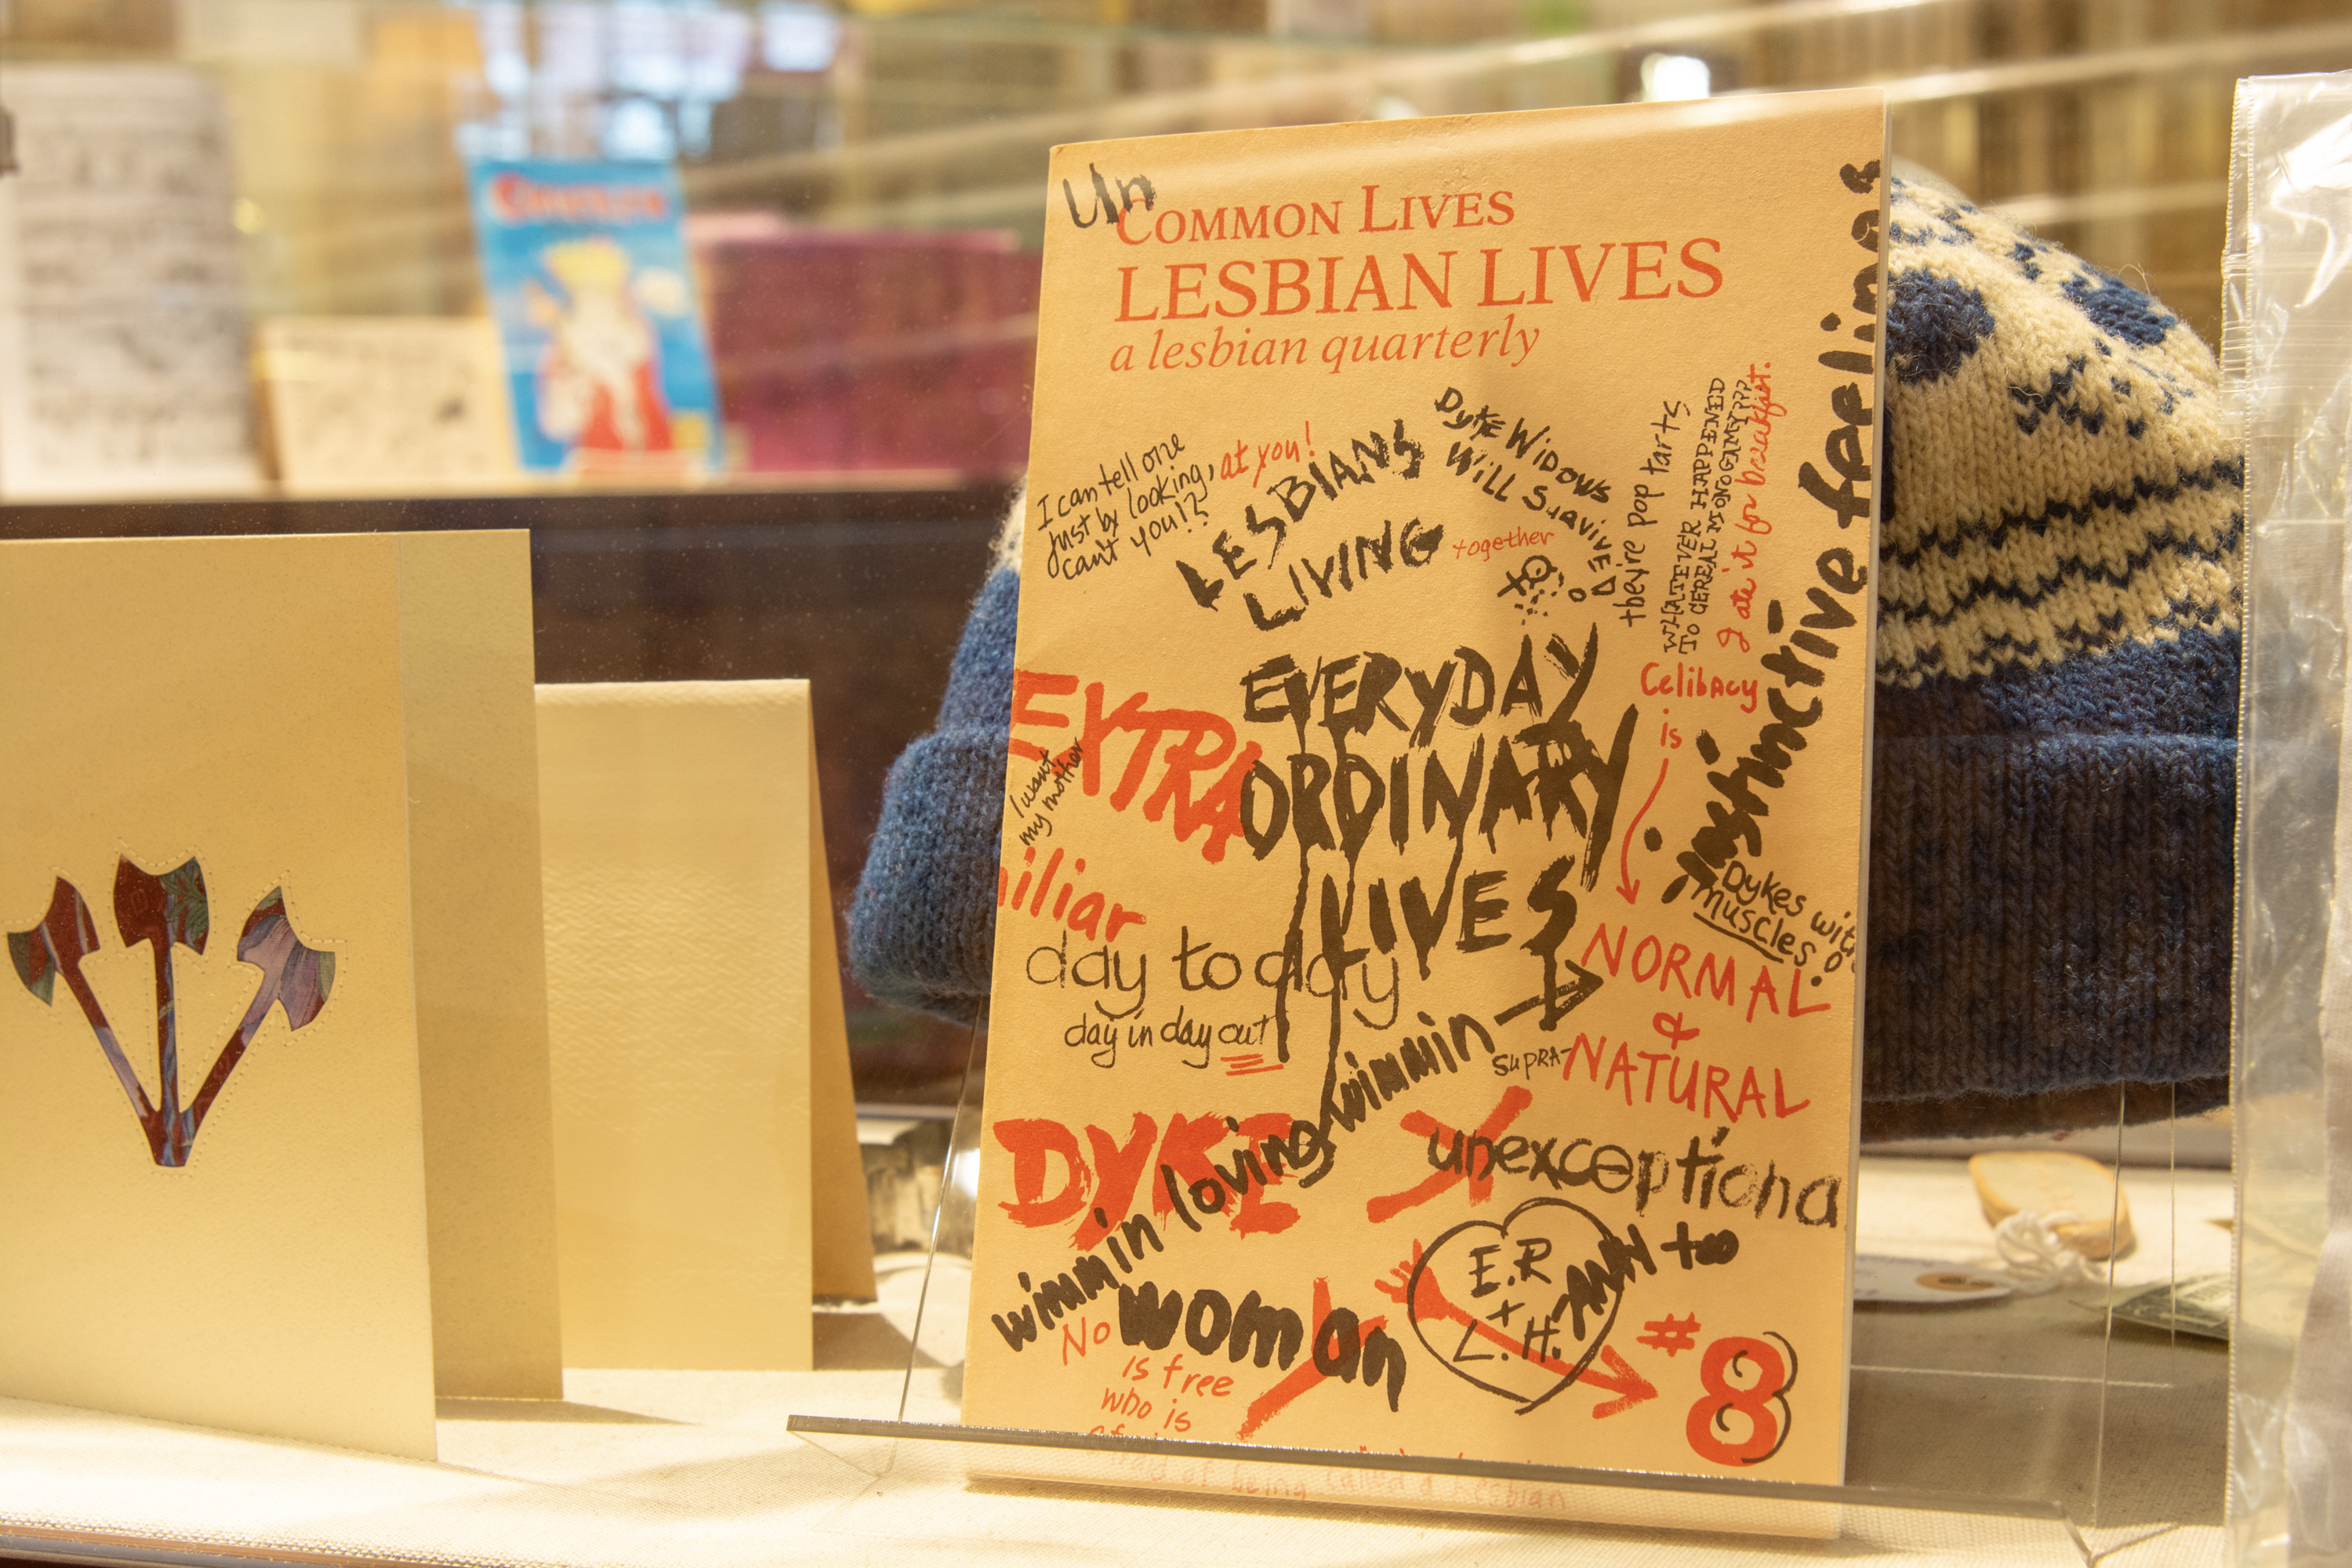 Un
COMMON LIVES
LESBIAN LIVES
a lesbian quarterly
I can tell one
just by looking, at you!
can't you!?
LESBIANS
LIVING together
Dyke Widows
Will Survive
they're pop tarts
WHATEVER HAPPENED
TO CEREAL MONOGAMY???
I ate it for breakfast.
instinctive feelings
EXTRA
EVERYDAY
ORDINARY
LIVES
I want
my mother
Celibacy
is
NORMAL
&
SUPRA-NATURAL
Dykes with
muscles.
iliar
day to day
day in day out
DYKE
wimmin loving wimmin
unexceptiona
No woman
is free
who is
afraid of being called a Lesbian
E.R
+
L.H.
#8